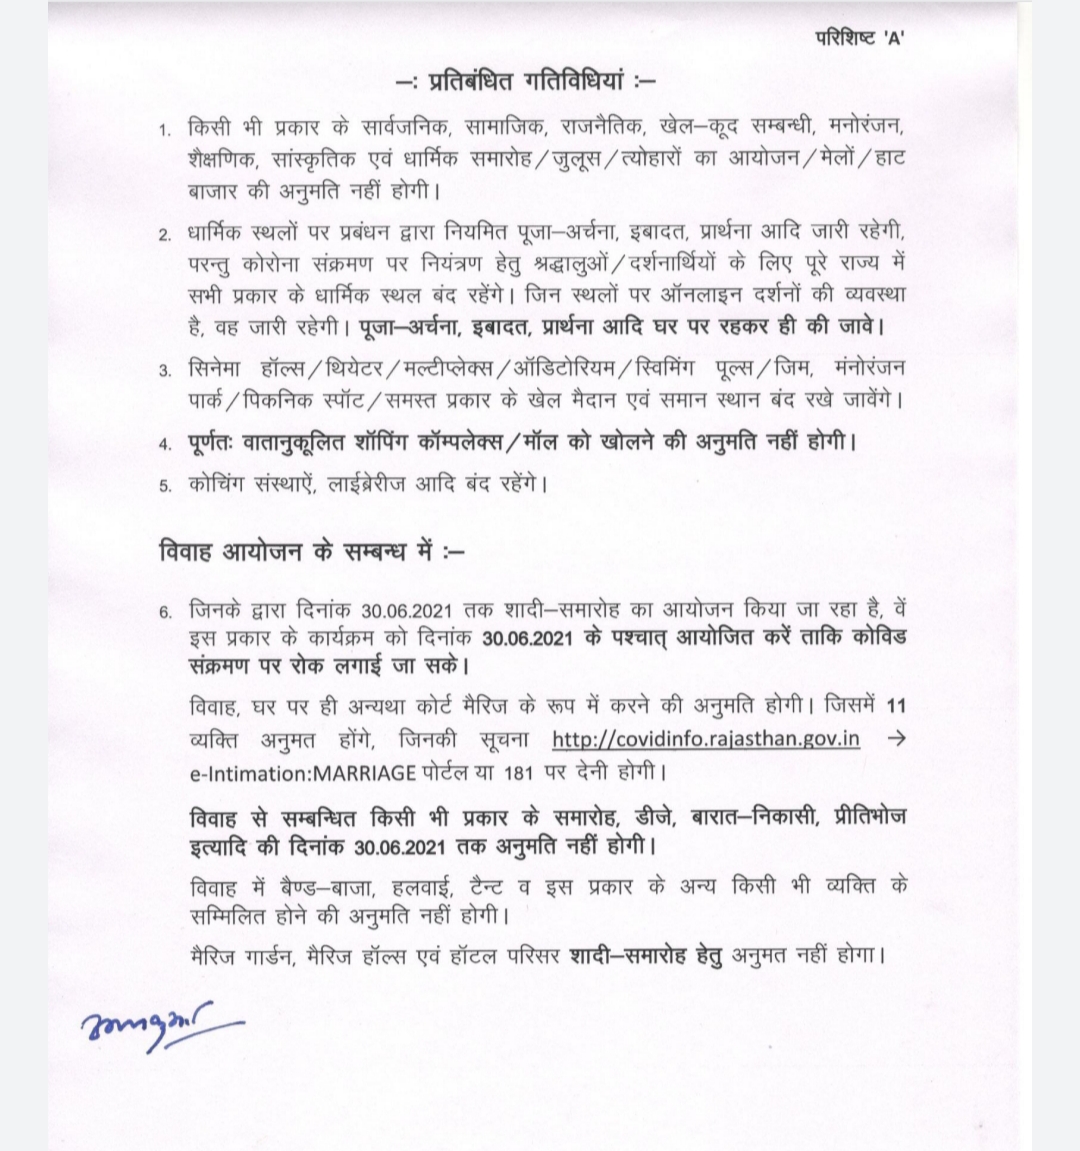 परिशिष्ट 'A'
–: प्रतिबंधित गतिविधियां :–
1. किसी भी प्रकार के सार्वजनिक, सामाजिक, राजनैतिक, खेल–कूद सम्बन्धी, मनोरंजन,
शैक्षणिक, सांस्कृतिक एवं धार्मिक समारोह/जुलूस/त्योहारों का आयोजन/मेलों/हाट
बाजार की अनुमति नहीं होगी।
2. धार्मिक स्थलों पर प्रबंधन द्वारा नियमित पूजा–अर्चना, इबादत, प्रार्थना आदि जारी रहेगी,
परन्तु कोरोना संक्रमण पर नियंत्रण हेतु श्रद्धालुओं/दर्शनार्थियों के लिए पूरे राज्य में
सभी प्रकार के धार्मिक स्थल बंद रहेंगे। जिन स्थलों पर ऑनलाइन दर्शनों की व्यवस्था
है, वह जारी रहेगी। पूजा–अर्चना, इबादत, प्रार्थना आदि घर पर रहकर ही की जावे।
3. सिनेमा हॉल्स/थियेटर/मल्टीप्लेक्स/ऑडिटोरियम/स्विमिंग पूल्स/जिम, मंनोरंजन
पार्क/पिकनिक स्पॉट/समस्त प्रकार के खेल मैदान एवं समान स्थान बंद रखे जावेंगे।
4. पूर्णतः वातानुकूलित शॉपिंग कॉम्पलेक्स/मॉल को खोलने की अनुमति नहीं होगी।
5. कोचिंग संस्थाऐं, लाईब्रेरीज आदि बंद रहेंगे।
विवाह आयोजन के सम्बन्ध में :–
6. जिनके द्वारा दिनांक 30.06.2021 तक शादी–समारोह का आयोजन किया जा रहा है, वें
इस प्रकार के कार्यक्रम को दिनांक 30.06.2021 के पश्चात् आयोजित करें ताकि कोविड
संक्रमण पर रोक लगाई जा सके।
विवाह, घर पर ही अन्यथा कोर्ट मैरिज के रूप में करने की अनुमति होगी। जिसमें 11
व्यक्ति अनुमत होंगे, जिनकी सूचना http://covidinfo.rajasthan.gov.in →
e-Intimation:MARRIAGE पोर्टल या 181 पर देनी होगी।
विवाह से सम्बन्धित किसी भी प्रकार के समारोह, डीजे, बारात–निकासी, प्रीतिभोज
इत्यादि की दिनांक 30.06.2021 तक अनुमति नहीं होगी।
विवाह में बैण्ड–बाजा, हलवाई, टैन्ट व इस प्रकार के अन्य किसी भी व्यक्ति के
सम्मिलित होने की अनुमति नहीं होगी।
मैरिज गार्डन, मैरिज हॉल्स एवं हॉटल परिसर शादी–समारोह हेतु अनुमत नहीं होगा।